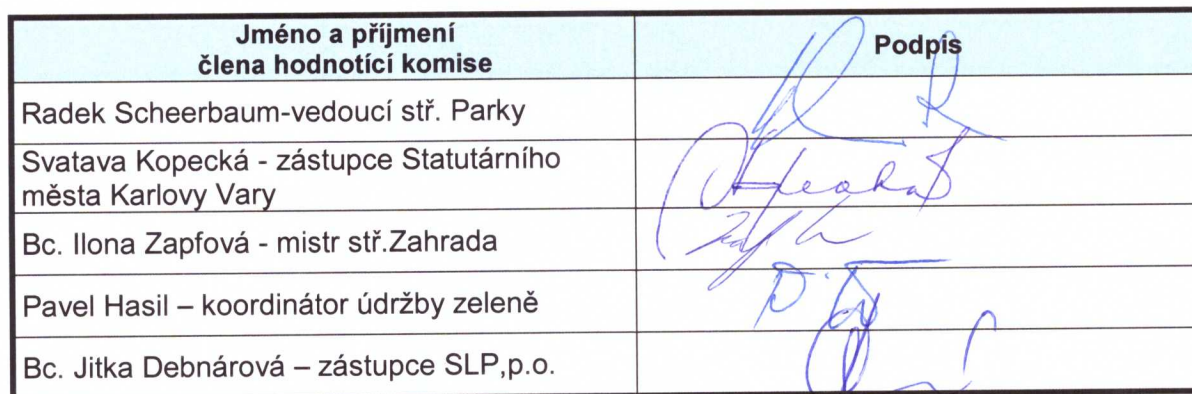 Jméno a příjmení
člena hodnotící komise
Podpis
Radek Scheerbaum-vedoucí stř. Parky
Svatava Kopecká - zástupce Statutárního
města Karlovy Vary
Bc. Ilona Zapfová - mistr stř.Zahrada
Pavel Hasil – koordinátor údržby zeleně
Bc. Jitka Debnárová – zástupce SLP,p.o.